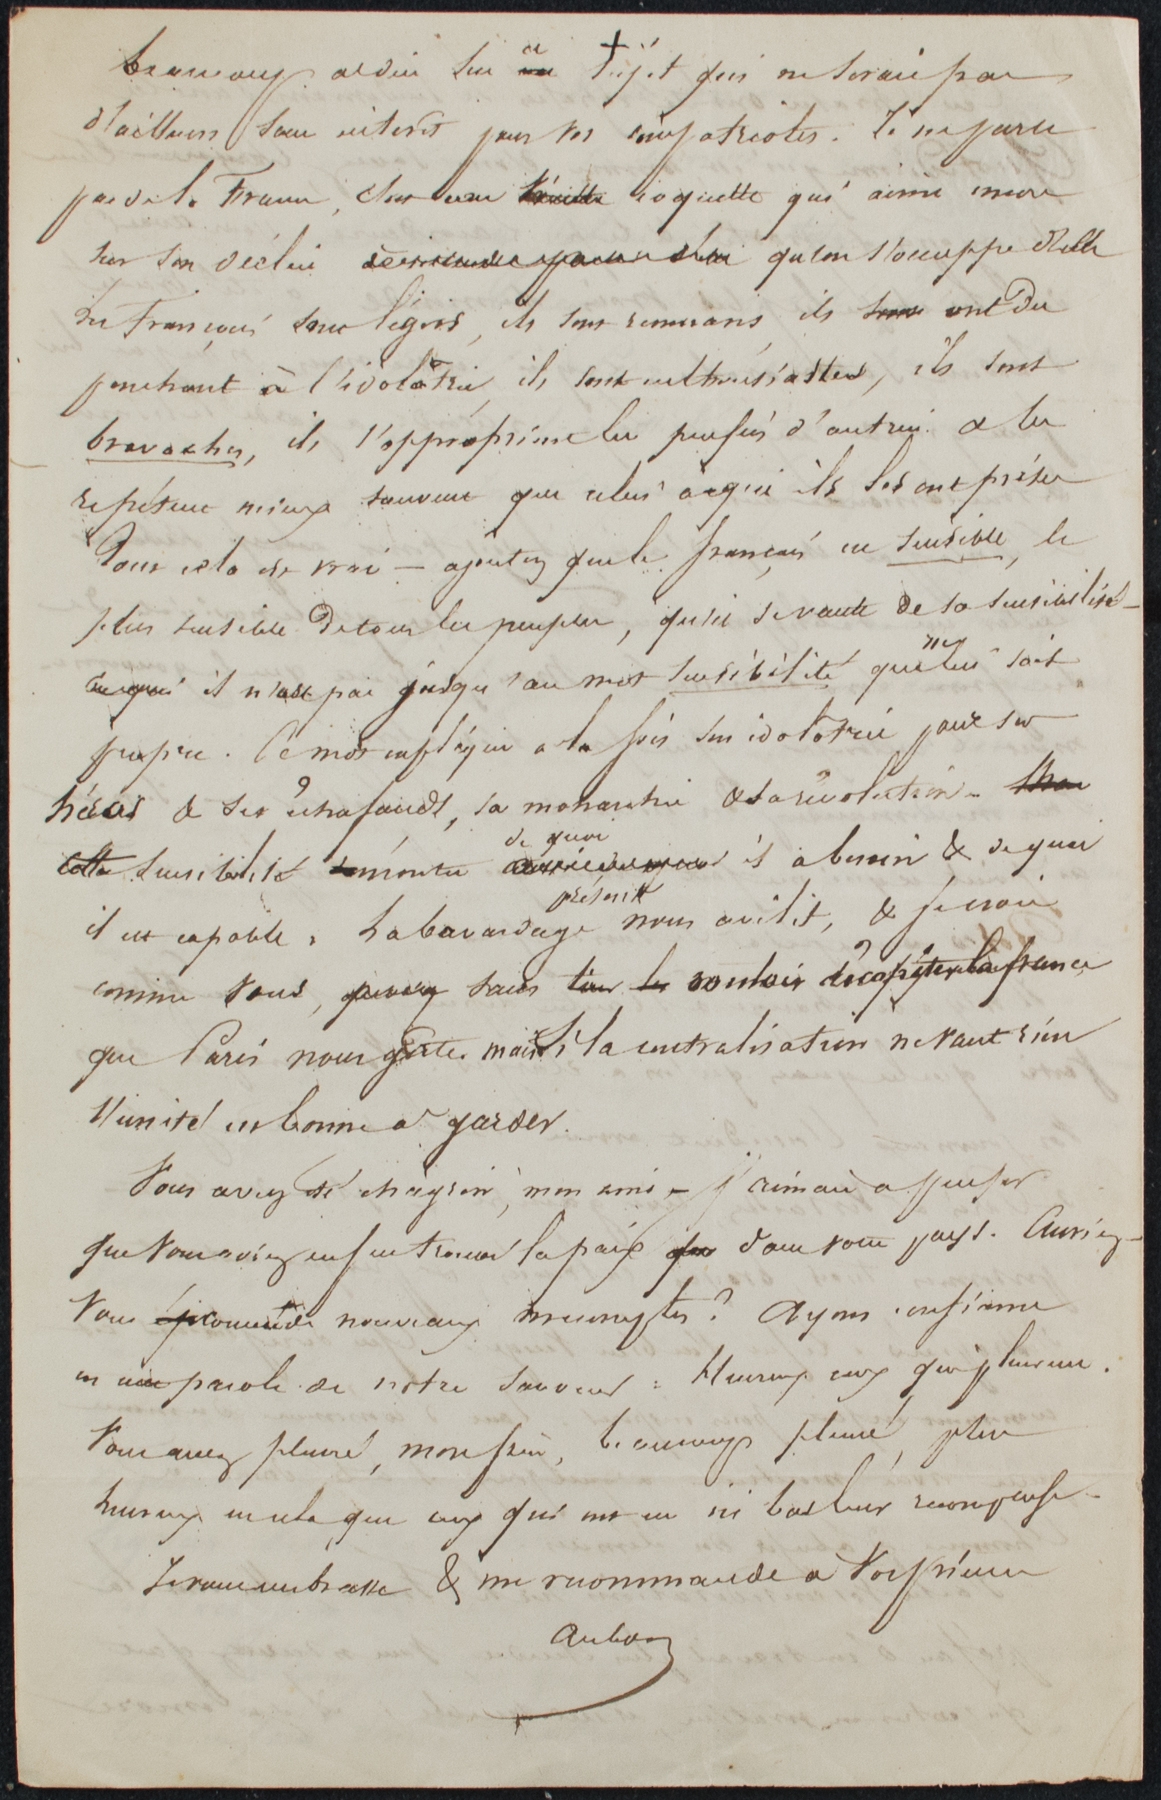 beaucoup à dire sur ce sujet qui ne serait pas
d'ailleurs sans intérêt pour vos compatriotes. Je ne parle
pas de la France, c'est une vieille coquette qui aime encore
sur son déclin qu'on s'occuppe d'elle
Les Français sont légers, ils sont remuans, ils sont ont du
penchant à l'idolâtrie, ils sont enthousiastes, ils sont
bravaches, ils s'approprient les pensées d'autrui & les
répétent mieux souvent que celui à qui ils les ont prises
Tout cela est vrai — ajoutez que le français est sensible, le
plus sensible de tous les peuples, qu'il se vante de sa sensibilité —
il n'est pas jusqu'au mot sensibilité qui ne lui soit
propre. Ce mot explique a la fois son idolatrie pour ses
héros & ses échafauds, sa monarchie & sa révolution —
cette sensibilité montre de quoi il a besoin & de quoi
il est capable. Le bavardage présent nous avilit, & je crois
comme vous, sans vouloir décapiter la france
que Paris nous gâte. mais si la centralisation ne vaut rien
l'unité est bonne a garder.
Vous avez du chagrin, mon ami — j'aimais a penser
que vous aviez enfin trouvé la paix dans votre pays. Auriez-
vous éprouvé de nouveaux mécomptes? Ayons confiance
en une parole de notre sauveur : Heureux ceux qui pleurent.
Vous avez pleuré, mon frère, beaucoup pleuré, plus
heureux en cela que ceux qui ont eu ici bas leur récompense —
Je vous embrasse & me recommande a vos prières